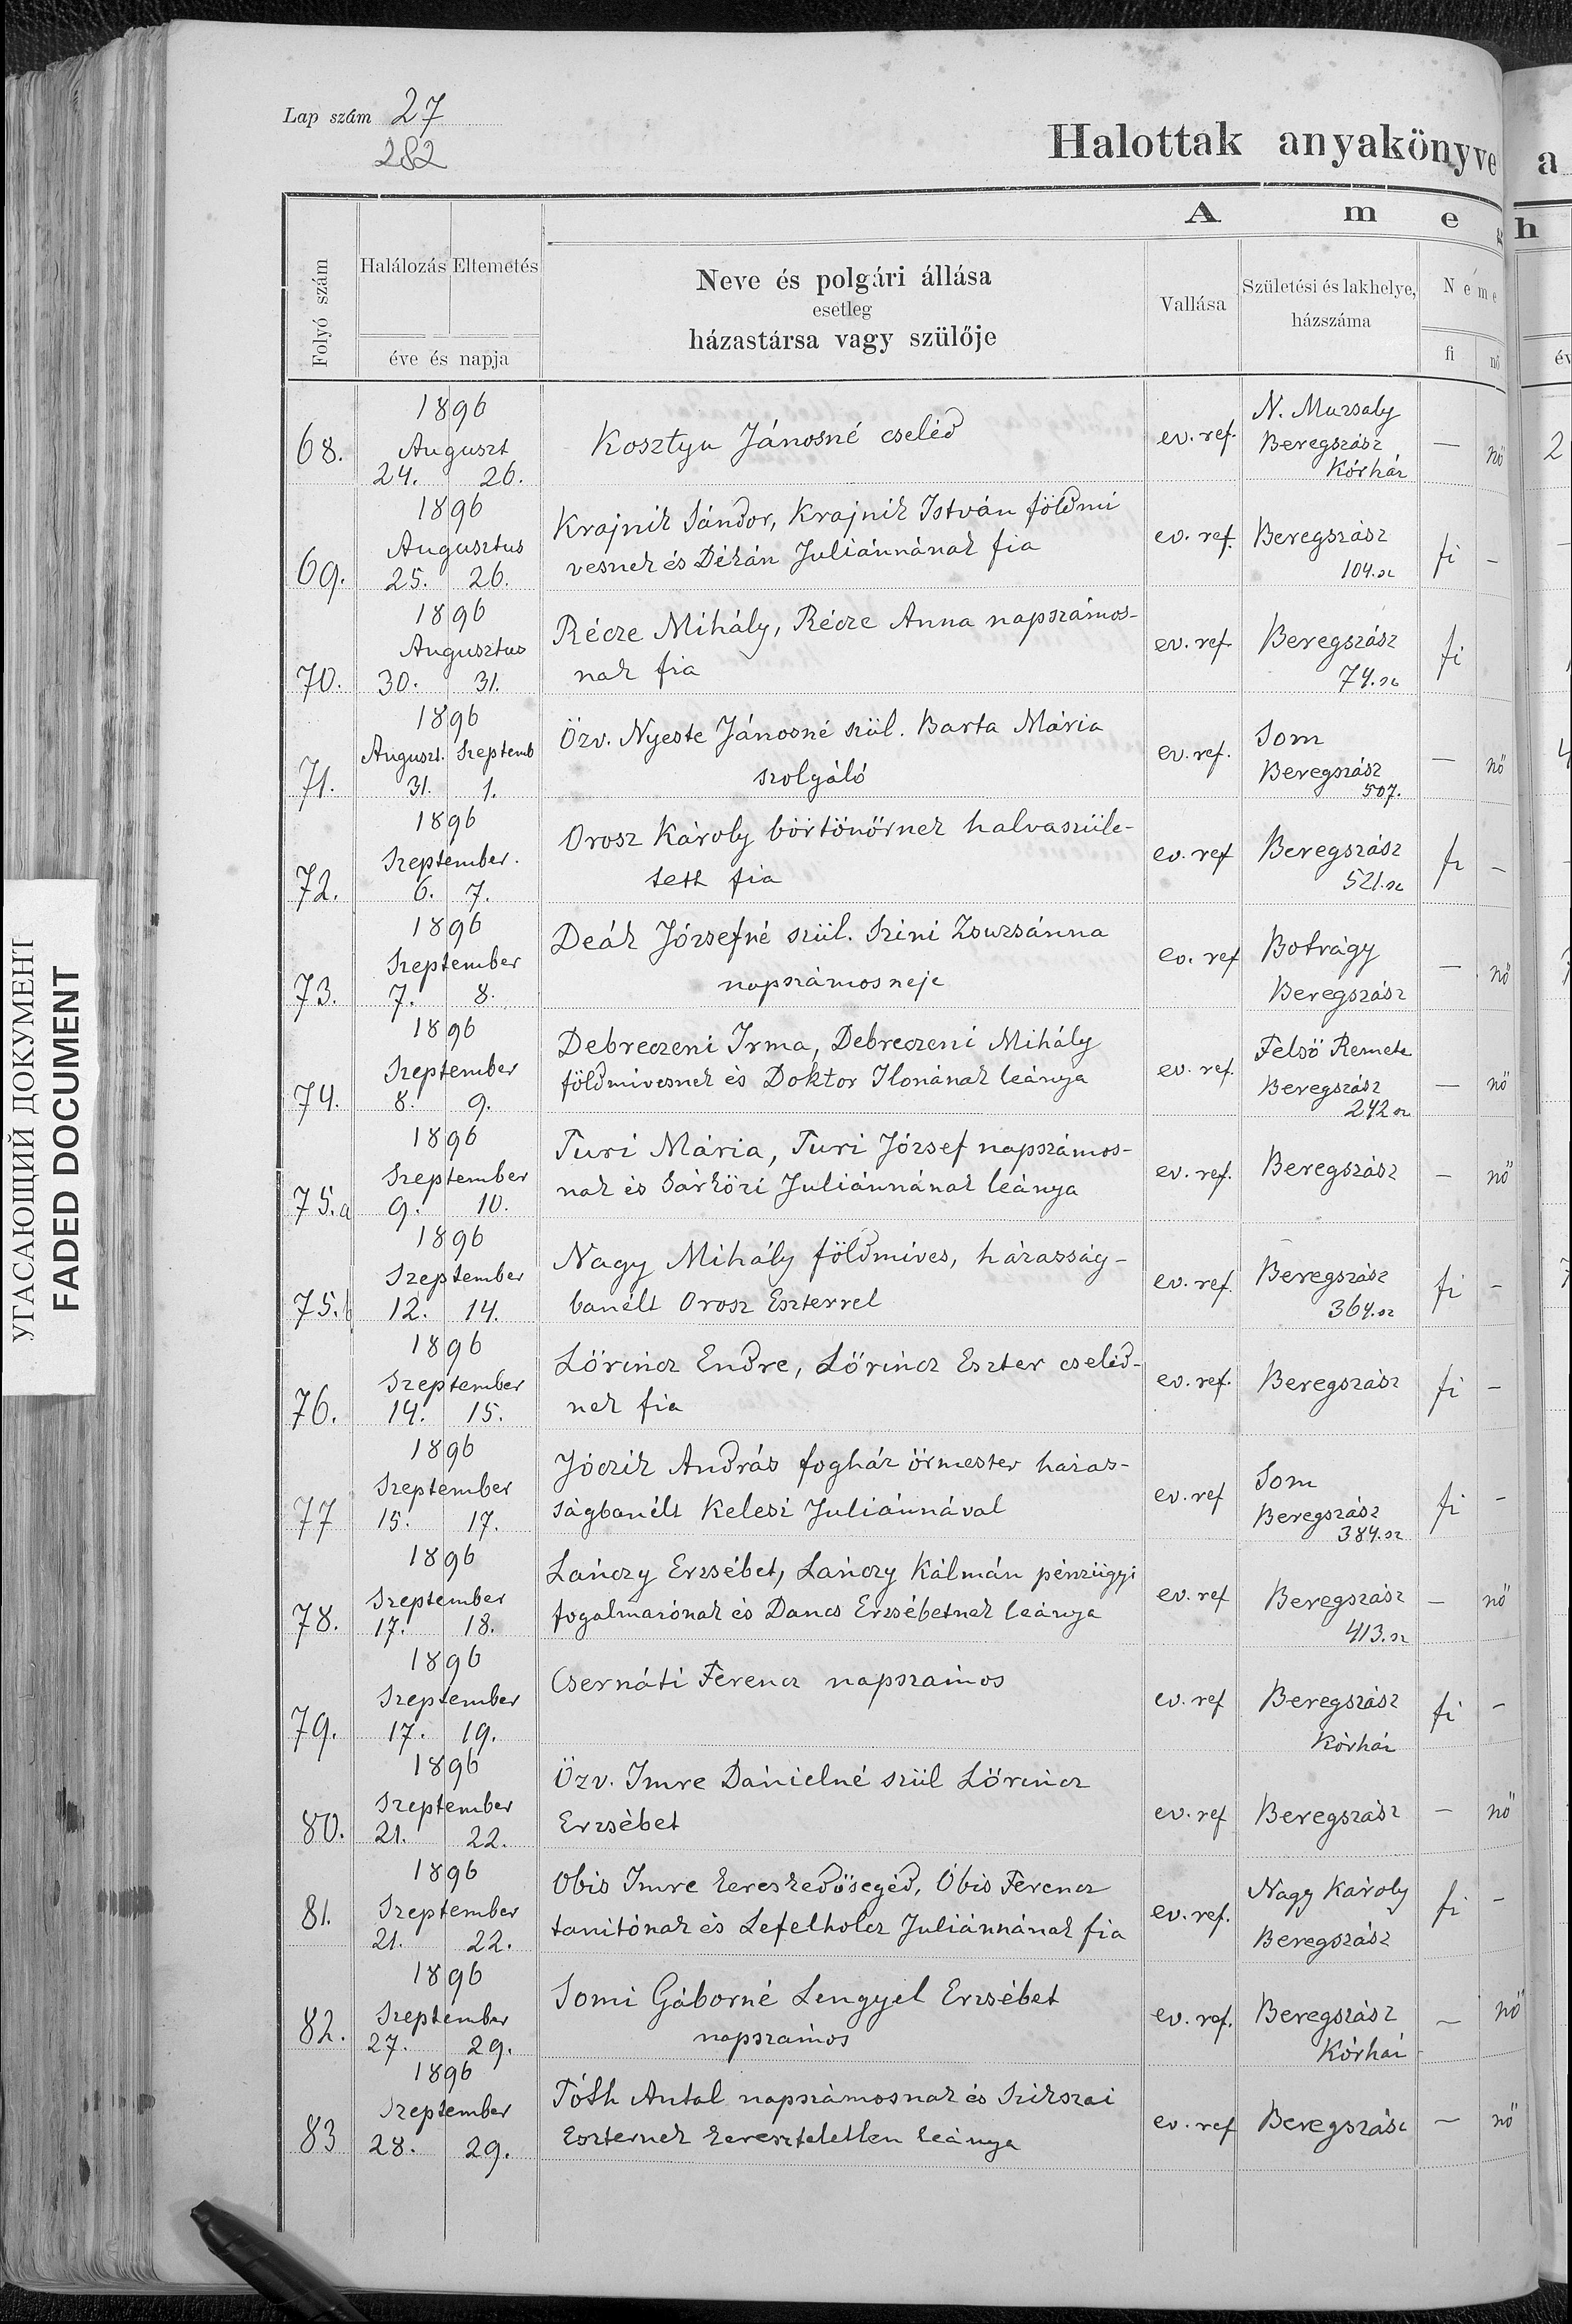 Lap szám 27
282
Halottak anyakönyve a
A m e g h
Folyó szám
Halálozás Eltemetés
éve és napja
Neve és polgári állása
esetleg
házastársa vagy szülője
Vallása
Születési és lakhelye,
házszáma
Neme
fi nő
év
1896
68. Auguszt 24. 26. Kosztyu Jánosné cseléd ev. ref. N. Muzsaly
Beregszász
Kórház — nő 2
1896
69. Augusztus 25. 26. Krajnik Sándor, Krajnik István földmi
vesnek és Dékán Juliánnának fia ev. ref. Beregszász
104. sz fi –
1896
70. Augusztus 30. 31. Récze Mihály, Récze Anna napszámos-
nak fia ev. ref. Beregszász
74. sz fi
1896
71. Auguszt. 31. Szeptemb 1. Özv. Nyeste Jánosné szül. Barta Mária
szolgáló ev. ref. Som
Beregszász
507. — nő 4
1896
72. Szeptember. 6. 7. Orosz Károly börtönőrnek halvaszüle-
tett fia ev. ref Beregszász
521. sz fi –
1896
73. Szeptember 7. 8. Deák Józsefné szül. Szini Zsuzsánna
napszámos neje ev. ref Botrágy
Beregszász — nő
1896
74. Szeptember 8. 9. Debreczeni Irma, Debreczeni Mihály
földmivesnek és Doktor Ilonának leánya ev. ref. Felső Remete
Beregszász
242 sz — nő
1896
75.a Szeptember 9. 10. Turi Mária, Turi József napszámos-
nak és Sárközi Juliánnának leánya ev. ref. Beregszász – nő
1896
75.b Szeptember 12. 14. Nagy Mihály földmíves, házasság-
banélt Orosz Eszterrel ev. ref. Beregszász
364. sz fi – 7
1896
76. Szeptember 14. 15. Lőrincz Endre, Lőrincz Eszter cseléd-
nek fia ev. ref. Beregszász fi –
1896
77 Szeptember 15. 17. Jóczik András fogház őrmester házas-
ságbanélt Kelesi Juliánnával ev. ref Som
Beregszász
384. sz fi –
1896
78. Szeptember 17. 18. Lánczy Erzsébet, Lánczy Kálmán pénzügyi
fogalmazónak és Dancs Erzsébetnek leánya ev. ref Beregszász
413. sz – nő
1896
79. Szeptember 17. 19. Csernáti Ferencz napszámos ev. ref Beregszász
Kórház fi –
1896
80. Szeptember 21. 22. Özv. Imre Dánielné szül Lőrincz
Erzsébet ev. ref Beregszász – nő
1896
81. Szeptember 21. 22. Obis Imre kereskedősegéd, Óbis Ferencz
tanitónak és Lefelholcz Juliánnának fia ev. ref. Nagy Károly
Beregszász fi –
1896
82. Szeptember 27. 29. Somi Gáborné Lengyel Erzsébet
napszámos ev. ref. Beregszász
Kórház – nő
1896
83 Szeptember 28. 29. Tóth Antal napszámosnak és Szikszai
Eszternek kereszteletlen leánya ev. ref Beregszász – nő
УГАСАЮЩИЙ ДОКУМЕНТ
FADED DOCUMENT